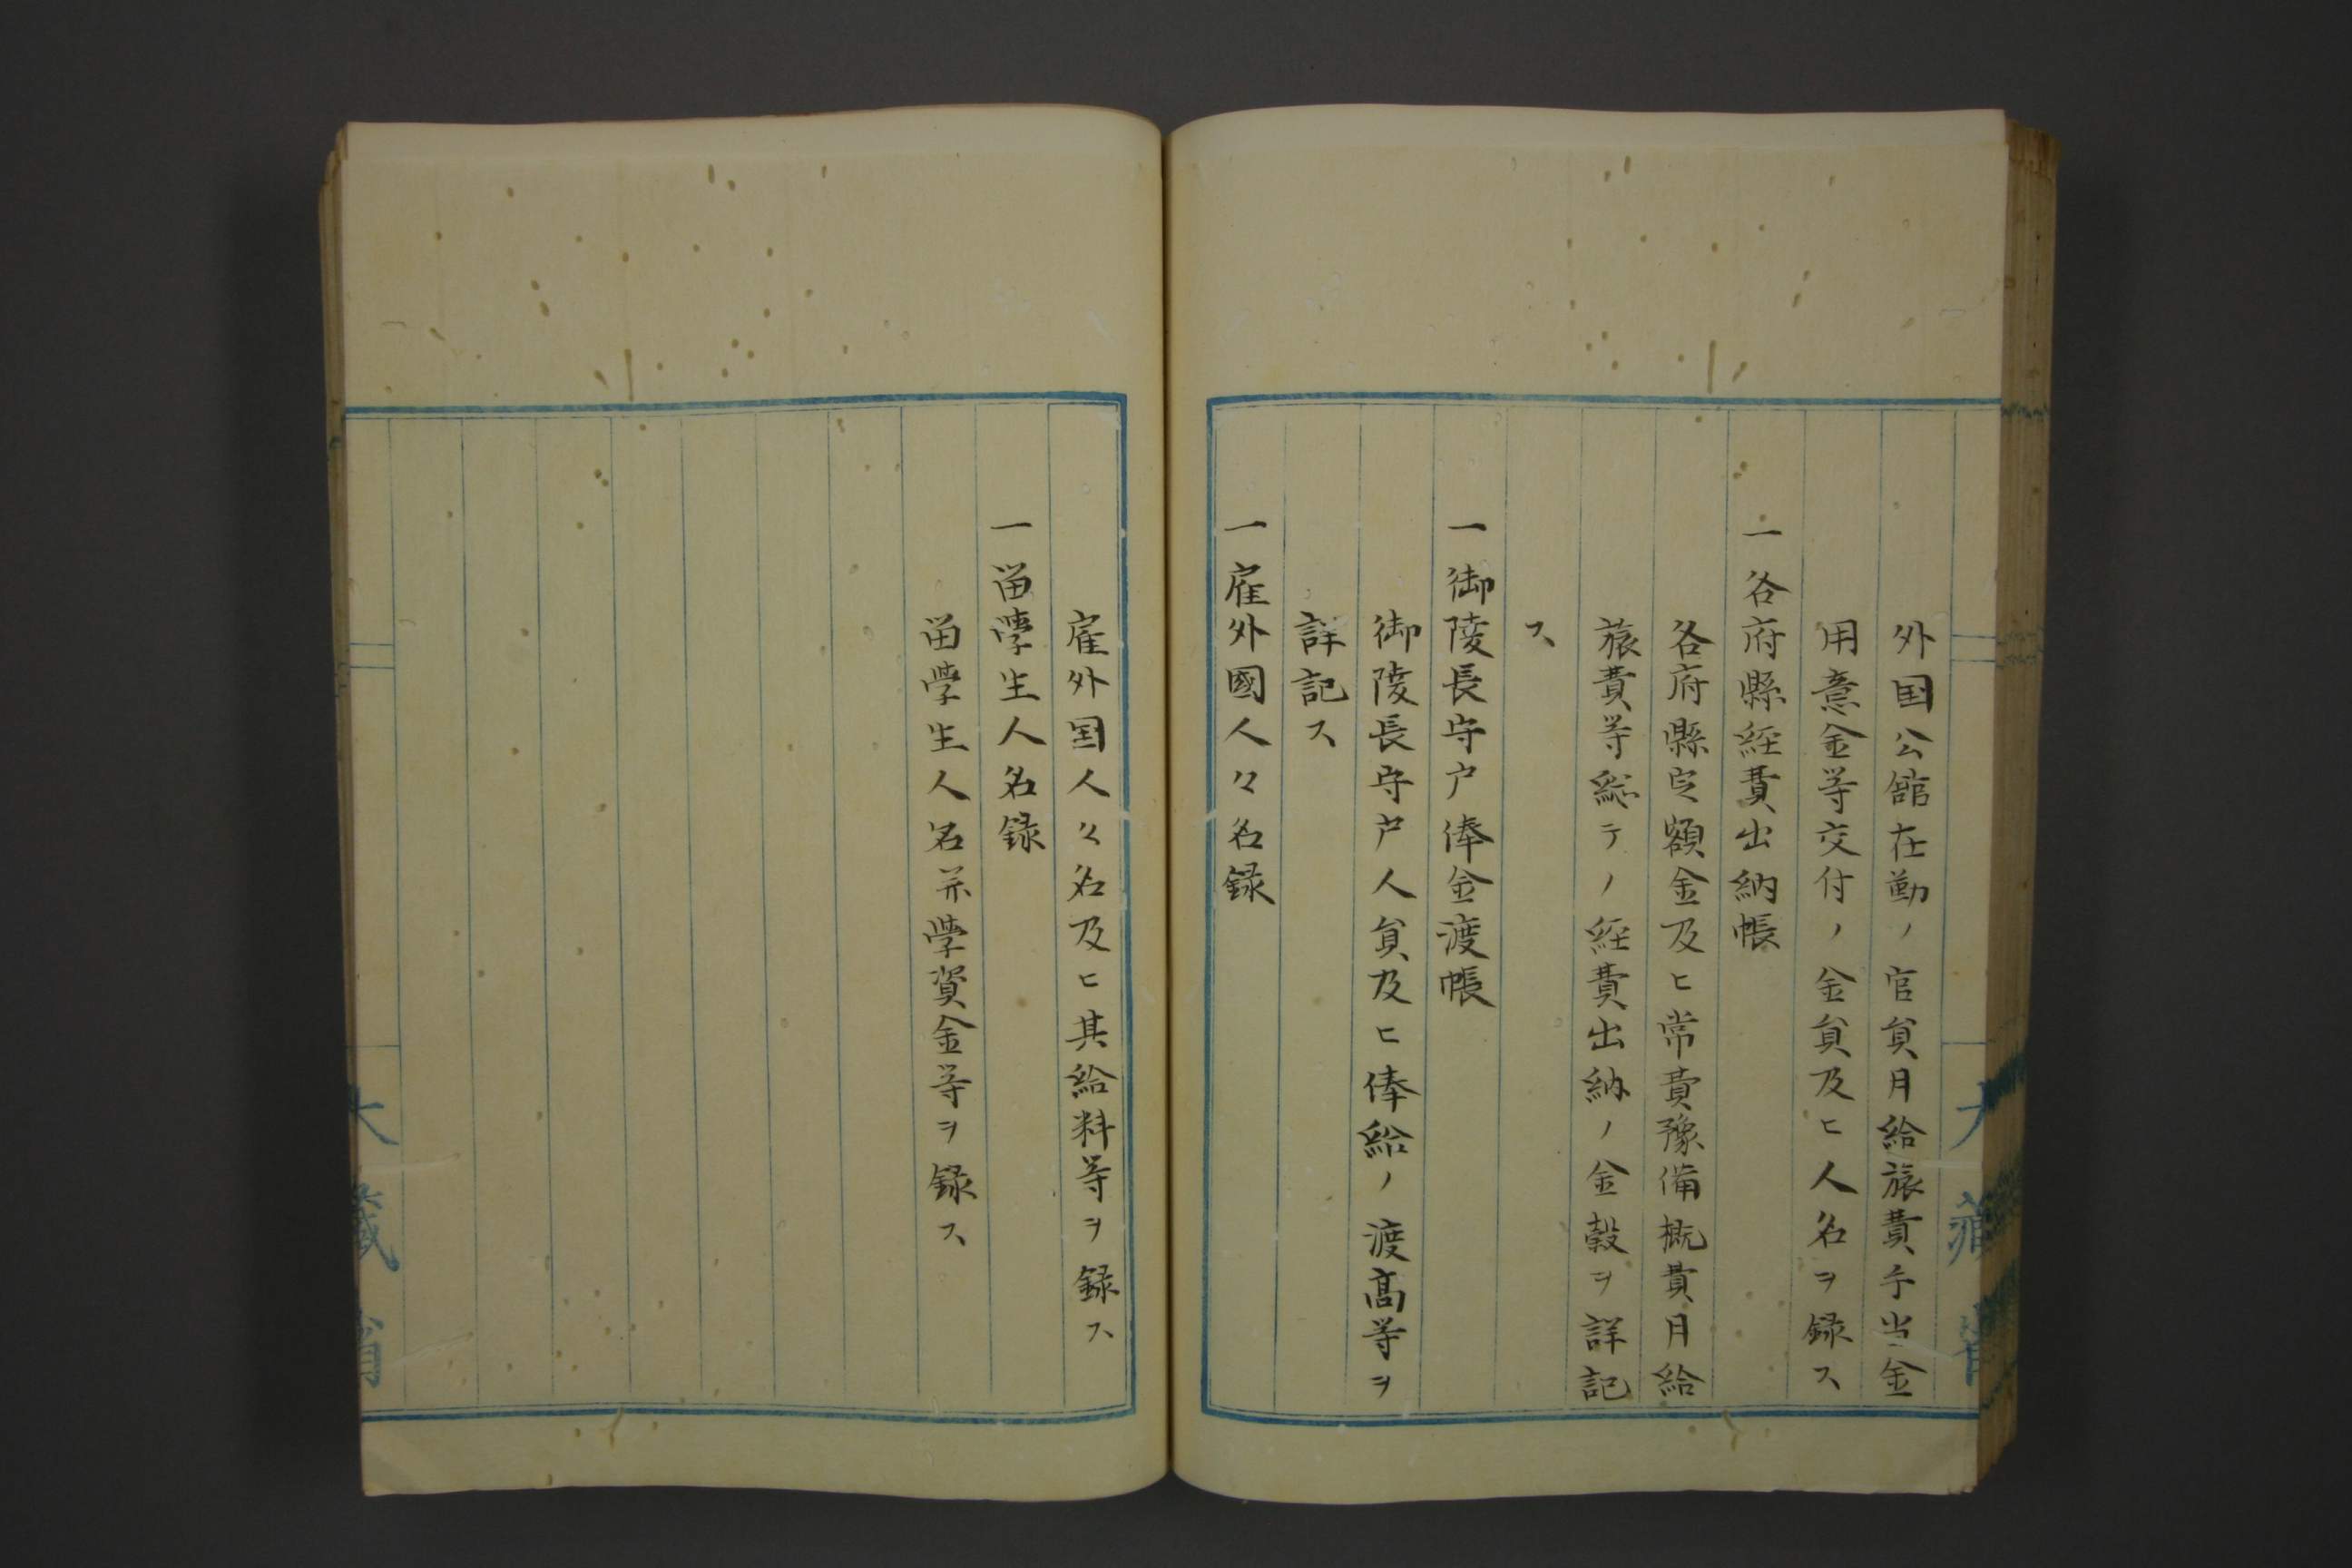 外国公舘在勤ノ官貟月給旅費手当金
用意金等交付ノ金貟及ヒ人名ヲ録ス
一各府縣経費出納帳
各府縣定額金及ヒ常費豫備概費月給
旅費等総テノ経費出納ノ金穀ヲ詳記
ス
一御陵長守戸俸金渡帳
御陵長守戸人貟及ヒ俸給ノ渡髙等ヲ
詳記ス
一雇外國人々名録
雇外国人々名及ヒ其給料等ヲ録ス
一留學生人名録
留學生人名并學資金等ヲ録ス
大藏省